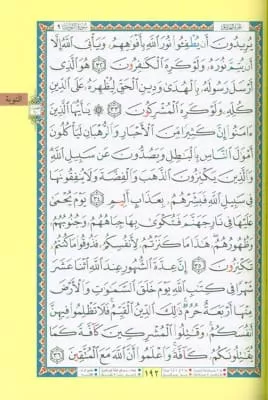 يُرِيدُونَ أَن يُطْفِـُٔوا۟ نُورَ ٱللَّهِ بِأَفْوَٰهِهِمْ وَيَأْبَى ٱللَّهُ إِلَّآ
أَن يُتِمَّ نُورَهُۥ وَلَوْ كَرِهَ ٱلْكَٰفِرُونَ ٣٢ هُوَ ٱلَّذِىٓ
أَرْسَلَ رَسُولَهُۥ بِٱلْهُدَىٰ وَدِينِ ٱلْحَقِّ لِيُظْهِرَهُۥ عَلَى ٱلدِّينِ
التوبة
كُلِّهِۦ وَلَوْ كَرِهَ ٱلْمُشْرِكُونَ ٣٣ يَٰٓأَيُّهَا ٱلَّذِينَ
ءَامَنُوٓا۟ إِنَّ كَثِيرًا مِّنَ ٱلْأَحْبَارِ وَٱلرُّهْبَانِ لَيَأْكُلُونَ
أَمْوَٰلَ ٱلنَّاسِ بِٱلْبَٰطِلِ وَيَصُدُّونَ عَن سَبِيلِ ٱللَّهِ
وَٱلَّذِينَ يَكْنِزُونَ ٱلذَّهَبَ وَٱلْفِضَّةَ وَلَا يُنفِقُونَهَا
فِى سَبِيلِ ٱللَّهِ فَبَشِّرْهُم بِعَذَابٍ أَلِيمٍ ٣٤ يَوْمَ يُحْمَىٰ
عَلَيْهَا فِى نَارِ جَهَنَّمَ فَتُكْوَىٰ بِهَا جِبَاهُهُمْ وَجُنُوبُهُمْ
وَظُهُورُهُمْ هَٰذَا مَا كَنَزْتُمْ لِأَنفُسِكُمْ فَذُوقُوا۟ مَا كُنتُمْ
تَكْنِزُونَ ٣٥ إِنَّ عِدَّةَ ٱلشُّهُورِ عِندَ ٱللَّهِ ٱثْنَا عَشَرَ
شَهْرًا فِى كِتَٰبِ ٱللَّهِ يَوْمَ خَلَقَ ٱلسَّمَٰوَٰتِ وَٱلْأَرْضَ
مِنْهَآ أَرْبَعَةٌ حُرُمٌ ذَٰلِكَ ٱلدِّينُ ٱلْقَيِّمُ فَلَا تَظْلِمُوا۟ فِيهِنَّ
أَنفُسَكُمْ وَقَٰتِلُوا۟ ٱلْمُشْرِكِينَ كَآفَّةً كَمَا
يُقَٰتِلُونَكُمْ كَآفَّةً وَٱعْلَمُوٓا۟ أَنَّ ٱللَّهَ مَعَ ٱلْمُتَّقِينَ ٣٦
١٩٢